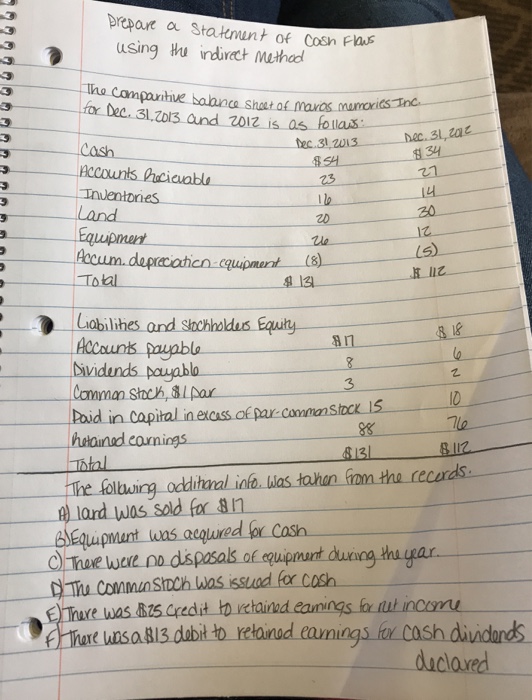 Prepare a Statement of Cash Flows
using the indirect Method
The comparitive balance sheet of Mavos memories Inc.
for Dec. 31, 2013 and 2012 is as follows:
Dec. 31, 2013 Dec. 31, 2012
Cash $54 $34
Accounts Recievable 23 27
Inventories 16 14
Land 20 30
Equipment 26 12
Accum. depreciation-equipment (8) (5)
Total $131 $112
Liabilities and stockholders Equity
Accounts payable $17 $18
Dividends payable 8 6
Common stock, $1 par 3 2
Paid in Capital in excess of par-common stock 15 10
Retained earnings 88 76
Total $131 $112
The following additional info. was taken from the records.
A) land was sold for $17
B) Equipment was acquired for cash
C) There were no disposals of equipment during the year.
D) The common stock was issued for cash
E) There was $25 credit to retained earnings for net income
F) There was a $13 debit to retained earnings for cash dividends
declared